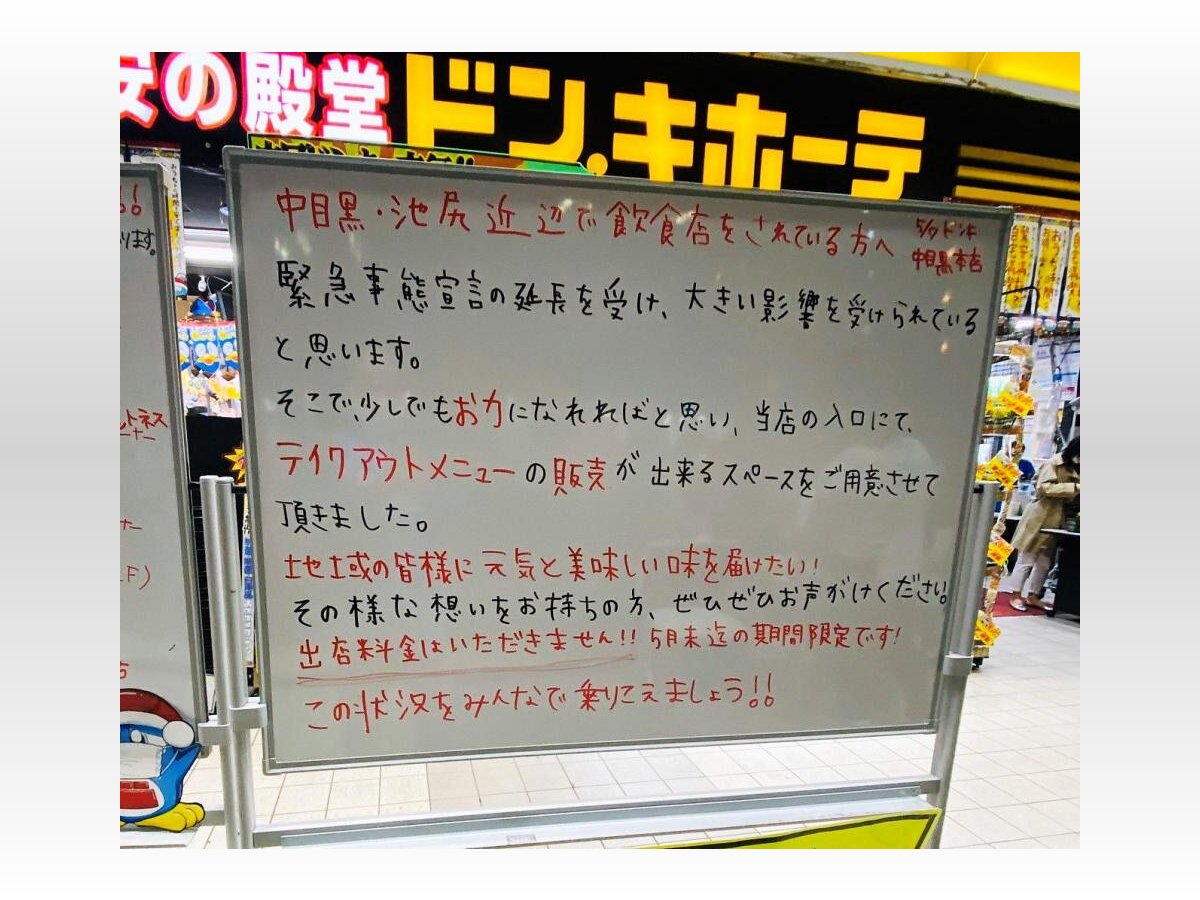 安の殿堂 ドン.キホーテ
中目黒・池尻近辺で飲食店をされている方へ
5/9 ドンキ
中目黒本店
緊急事態宣言の延長を受け、大きい影響を受けられている
と思います。
そこで、少しでもお力になれればと思い、当店の入口にて、
テイクアウトメニューの販売が出来るスペースをご用意させて
頂きました。
地域の皆様に元気と美味しい味を届けたい!
その様な想いをお持ちの方、ぜひぜひお声がけください。
出店料金はいただきません!! 5月末迄の期間限定です!
この状況をみんなで乗りこえましょう!!